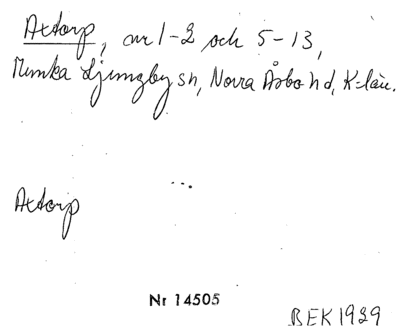 Axtorp, nr 1-2 och 5-13,
Munka Ljungby sn, Norra Åsbo hd, K-län.
...
Axtorp
Nr 14505
BEK 1929